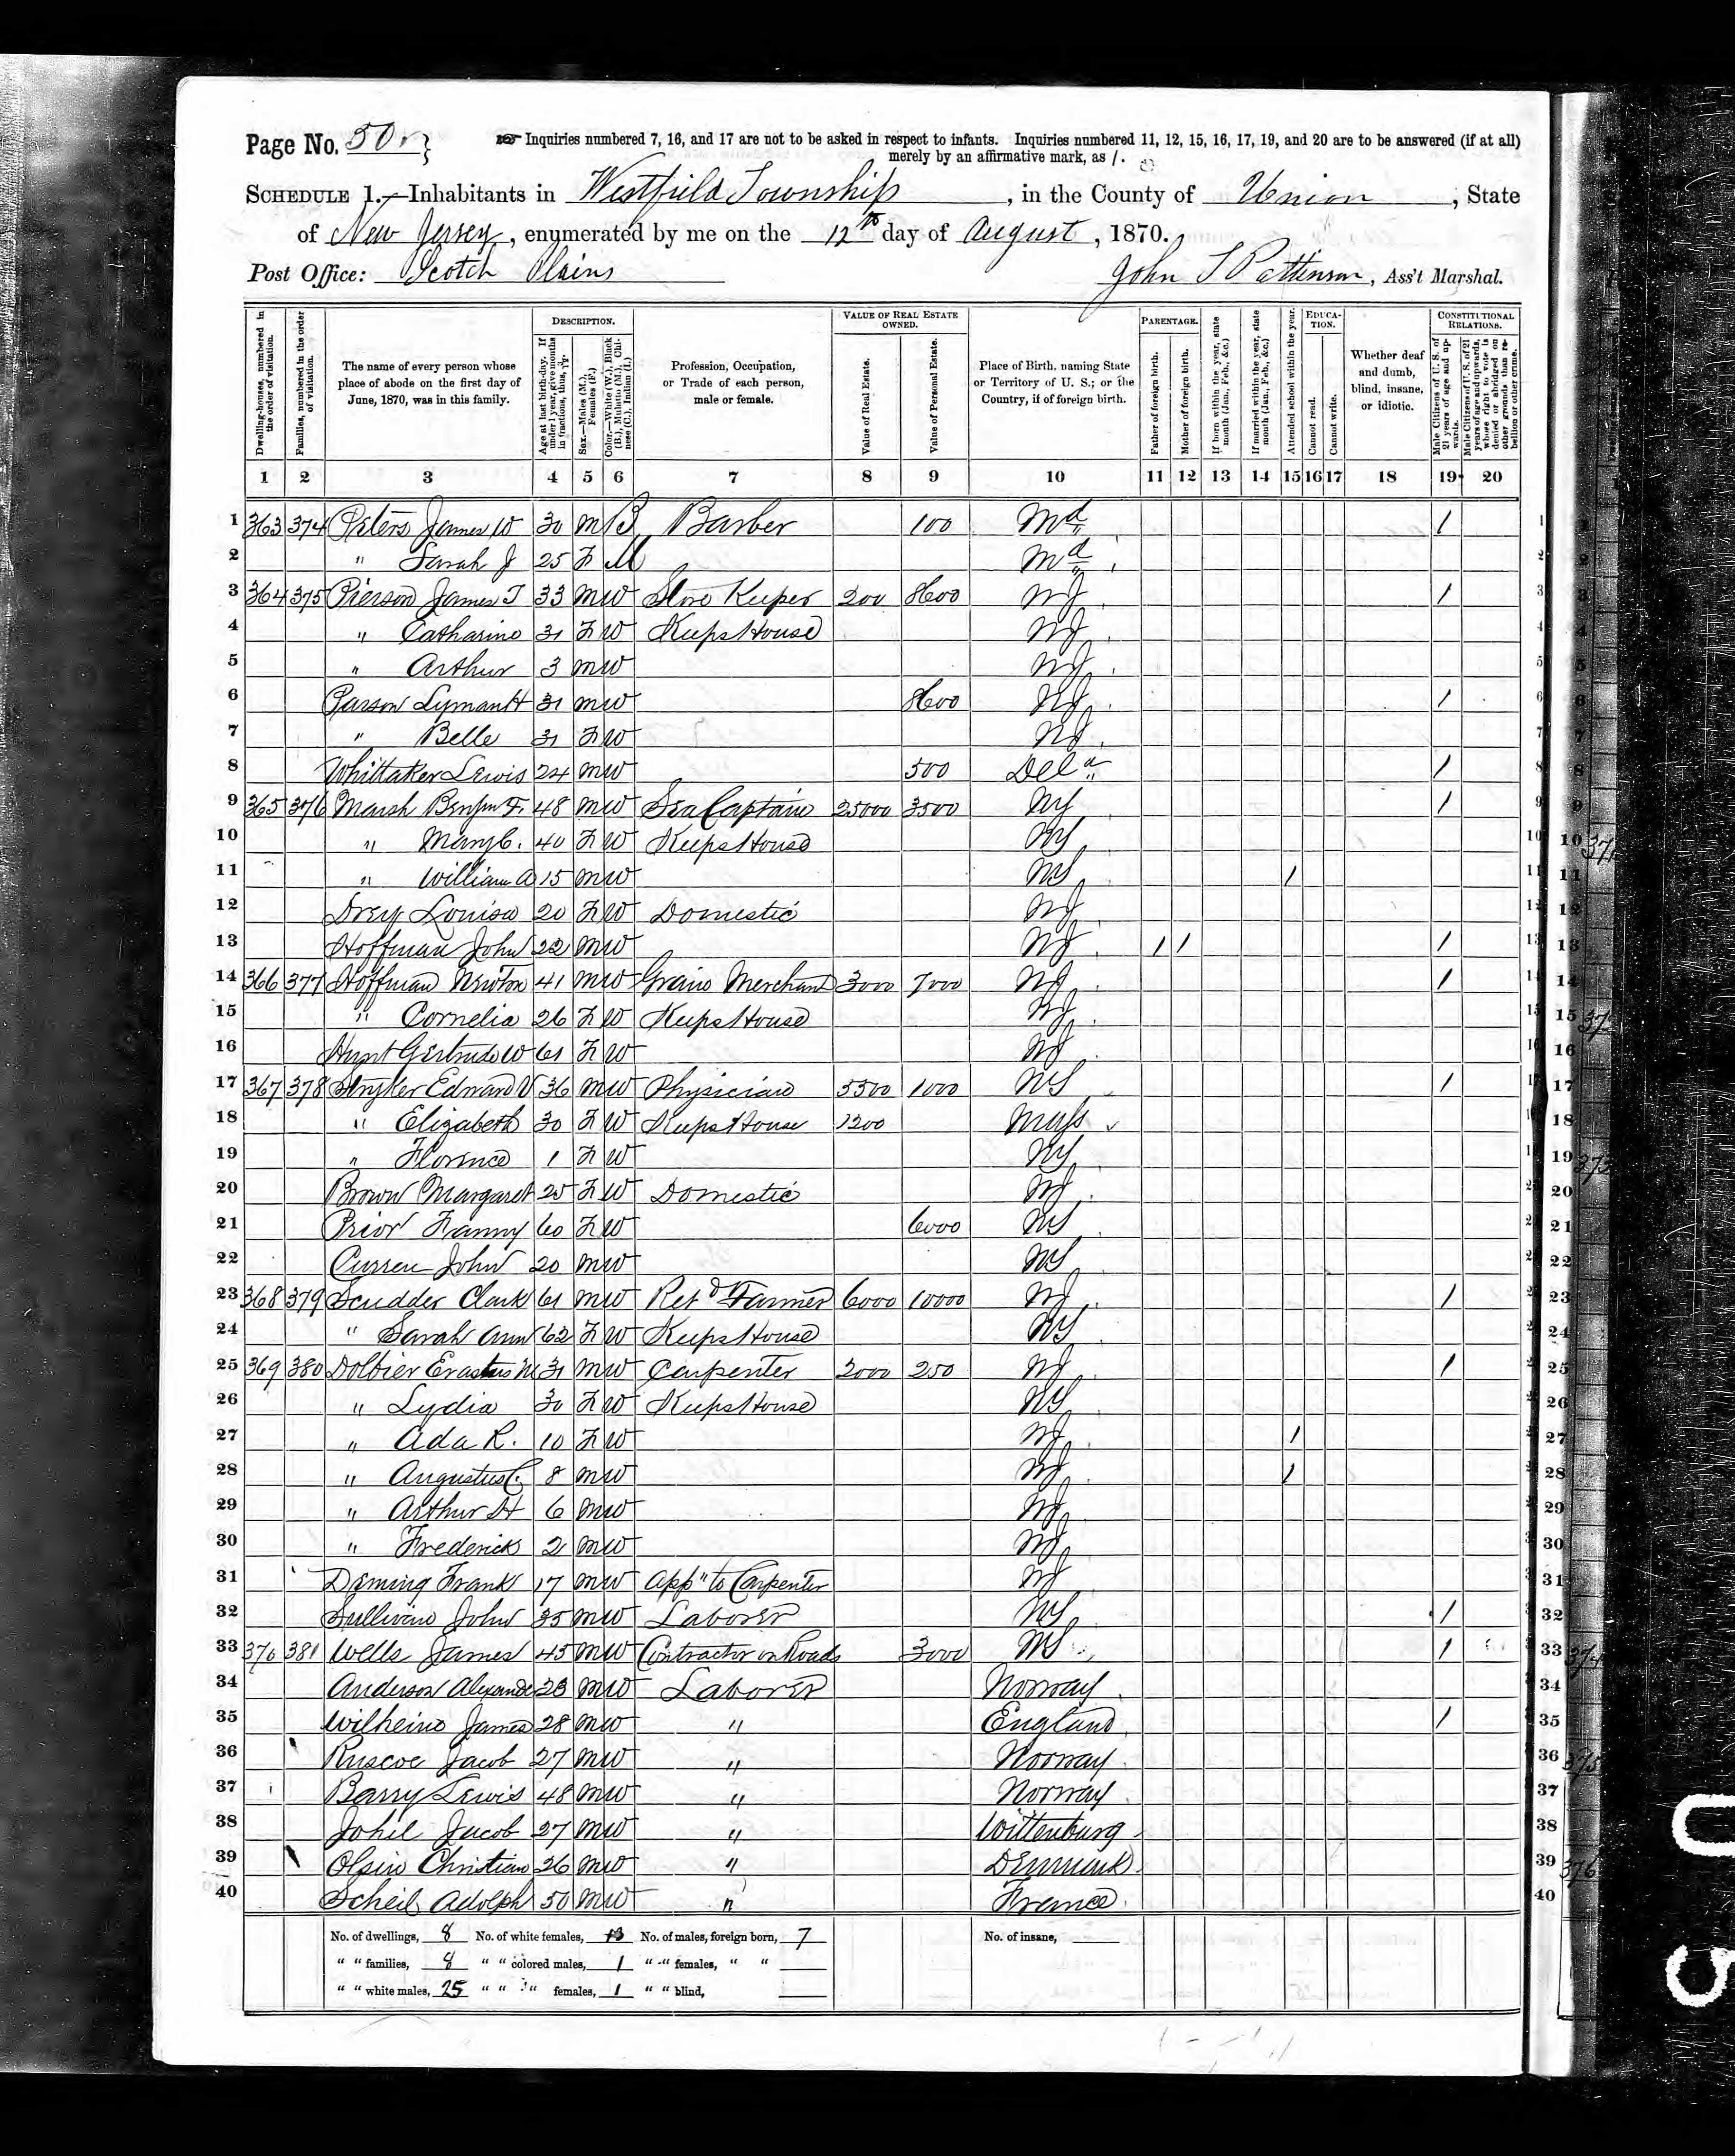 Page No. 50
Inquiries numbered 7, 16, and 17 are not to be asked in respect to infants. Inquiries numbered 11, 12, 15, 16, 17, 19, and 20 are to be answered (if at all)
merely by an affirmative mark, as /.
SCHEDULE 1.—Inhabitants in Westfield Township, in the County of Union, State
of New Jersey, enumerated by me on the 12th day of August, 1870.
Post Office: Scotch Plains
John T Pattinson, Ass't Marshal.
Dwelling-houses, numbered in the order of visitation.
Families, numbered in the order of visitation.
The name of every person whose place of abode on the first day of June, 1870, was in this family.
DESCRIPTION.
Age at last birth-day. If under 1 year, give months in fractions, thus,
Sex.—Males (M.), Females (F.)
Color.—White (W.), Black (B.), Mulatto (M.), Chinese (C.), Indian (I.)
Profession, Occupation, or Trade of each person, male or female.
VALUE OF REAL ESTATE OWNED.
Value of Real Estate.
Value of Personal Estate.
Place of Birth, naming State or Territory of U. S.; or the Country, if of foreign birth.
PARENTAGE.
Father of foreign birth.
Mother of foreign birth.
If born within the year, state month (Jan., Feb., &c.)
If married within the year, state month (Jan., Feb., &c.)
Attended school within the year.
EDUCATION.
Cannot read.
Cannot write.
Whether deaf and dumb, blind, insane, or idiotic.
CONSTITUTIONAL RELATIONS.
Male Citizens of U. S. of 21 years of age and upwards.
Male Citizens of U. S. of 21 years of age and upwards, whose right to vote is denied or abridged on other grounds than rebellion or other crime.
1 2 3 4 5 6 7 8 9 10 11 12 13 14 15 16 17 18 19 20
1 363 374 Peters James W 30 M B Barber 100 Md / 1
2 " Sarah J 25 F M Md 2
3 364 375 Pierson James T 33 M W Store Keeper 200 8600 NJ / 3
4 " Catharine 31 F W Keeps House NJ 4
5 " Arthur 3 M W NJ 5
6 Parson Lyman H 31 M W 8600 NJ / 6
7 " Belle 31 F W NJ 7
8 Whittaker Lewis 24 M W 500 Dela / 8
9 365 376 Marsh Benjn F. 48 M W Sea Captain 25000 3500 NY / 9
10 " Mary C. 40 F W Keeps House NY 10
11 " William A 15 M W NY / 11
12 Drey Louisa 20 F W Domestic NJ 12
13 Hoffman John 22 M W NJ / / / 13
14 366 377 Hoffman Newton 41 M W Grain Merchant 3000 7000 NJ / 14
15 " Cornelia 26 F W Keeps House NJ 15
16 Hunt Gertrude W 61 F W NJ 16
17 367 378 Stryker Edward V 36 M W Physician 5500 1000 NY / 17
18 " Elizabeth 30 F W Keeps House 1200 Mass 18
19 " Florence 1 F W NY 19
20 Brown Margaret 25 F W Domestic NJ 20
21 Prior Fanny 60 F W 6000 NY 21
22 Curren John 20 M W NY 22
23 368 379 Scudder Clark 61 M W Retd Farmer 6000 10000 NJ / 23
24 " Sarah Ann 62 F W Keeps House NY 24
25 369 380 Dolbier Erastus M 31 M W Carpenter 2000 250 NJ / 25
26 " Lydia 30 F W Keeps House NY 26
27 " Ada R. 10 F W NJ / 27
28 " Augustus C. 8 M W NJ / 28
29 " Arthur H 6 M W NJ 29
30 " Frederick 2 M W NJ 30
31 Deming Frank 17 M W App" to Carpenter NJ 31
32 Sullivan John 35 M W Laborer NY / 32
33 370 381 Wells James 45 M W Contractor on Roads 3000 NY / 33
34 Anderson Alexander 23 M W Laborer Norway 34
35 Wilheino James 28 M W " England / 35
36 Ruscoe Jacob 27 M W " Norway 36
37 Barry Lewis 48 M W " Norway 37
38 Johil Jacob 27 M W " Wittenburg 38
39 Olsin Christian 26 M W " Denmark 39
40 Scheib Adolph 50 M W " France 40
No. of dwellings, 8 No. of white females, 13 No. of males, foreign born, 7 No. of insane,
" " families, 8 " " colored males, 1 " " females, " "
" " white males, 25 " " " females, 1 " " blind,